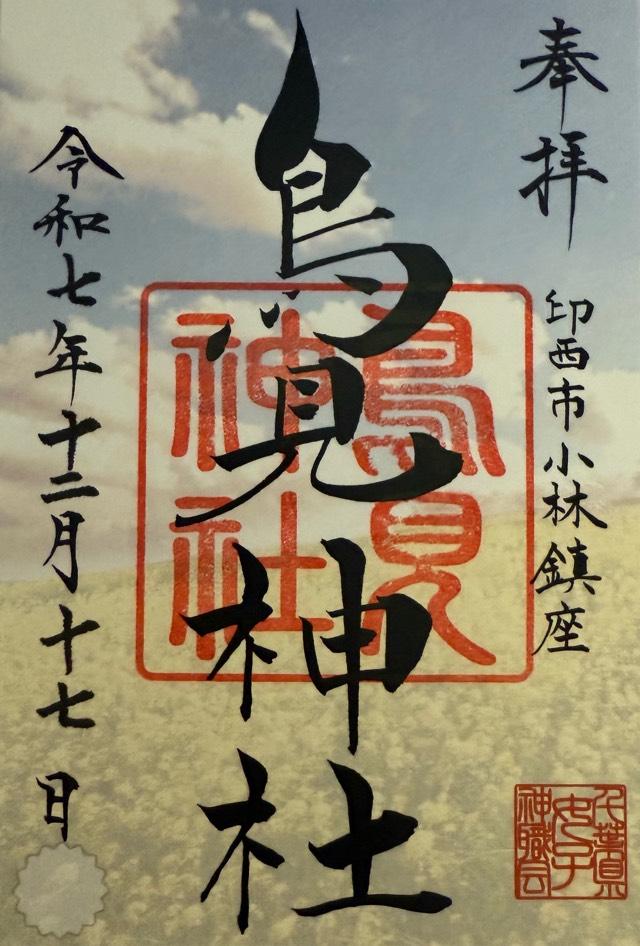 奉拝
印西市小林鎮座
鳥見神社
鳥見
神社
令和七年十二月十七日
千葉県
女子
神職会